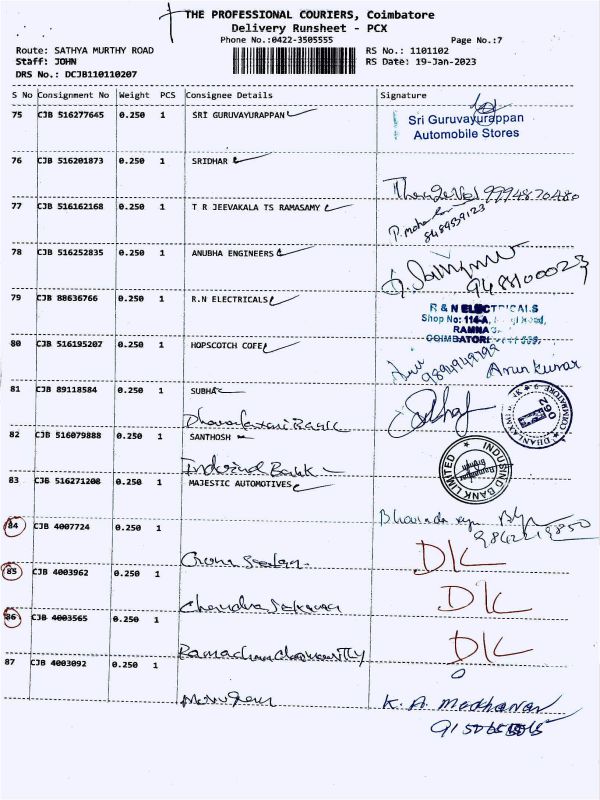 THE PROFESSIONAL COURIERS, Coimbatore
Delivery Runsheet - PCX
Phone No.:0422-3505555
Page No.:7
Route: SATHYA MURTHY ROAD
RS No.: 1101102
Staff: JOHN
RS Date: 19-Jan-2023
DRS No.: DCJB110110207
S No Consignment No Weight PCS Consignee Details Signature
75 CJB 516277645 0.250 1 SRI GURUVAYURAPPAN
Sri Guruvayurappan
Automobile Stores
76 CJB 516201873 0.250 1 SRIDHAR
9994870480
77 CJB 516162168 0.250 1 T R JEEVAKALA TS RAMASAMY
8489559123
78 CJB 516252835 0.250 1 ANUBHA ENGINEERS
79 CJB 88636766 0.250 1 R.N ELECTRICALS
R & N ELECTRICALS
Shop No: 114-A,
COIMBATORE
80 CJB 516195207 0.250 1 HOPSCOTCH COFE
Arun kumar
81 CJB 89118584 0.250 1 SUBHA
Bank
82 CJB 516079888 0.250 1 SANTHOSH
INDUSIND BANK LIMITED
Indusind Bank
83 CJB 516271208 0.250 1 MAJESTIC AUTOMOTIVES
84 CJB 4007724 0.250 1
D/L
85 CJB 4003962 0.250 1
Chandra Sekaran
D/L
86 CJB 4003565 0.250 1
D/L
87 CJB 4003092 0.250 1
K. A. Madhavan